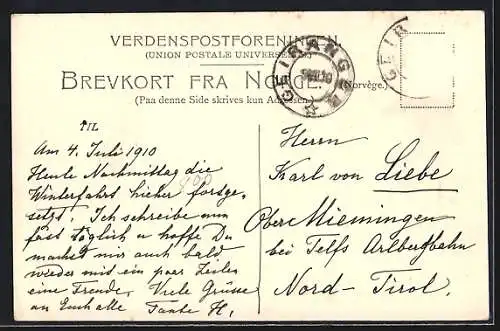 VERDENSPOSTFORENINGEN
(UNION POSTALE UNIVERSELLE)
BREVKORT FRA NORGE. (Norvège.)
(Paa denne Side skrives kun Adressen)
GEIRANGER
GEIR
TIL
Am 4. Juli 1910
Heute Nachmittag die
Winterfahrt hieher fortge-
setzt. Ich schreibe nun
fast täglich u hoffe Du
machst mir auch bald
wieder mit ein paar Zeilen
eine Freude. Viele Grüsse
an Euch alle Tante H.
Herrn
Karl von Liebe
Ober Mieningen
bei Telfs Arlbergbahn
Nord-Tirol.